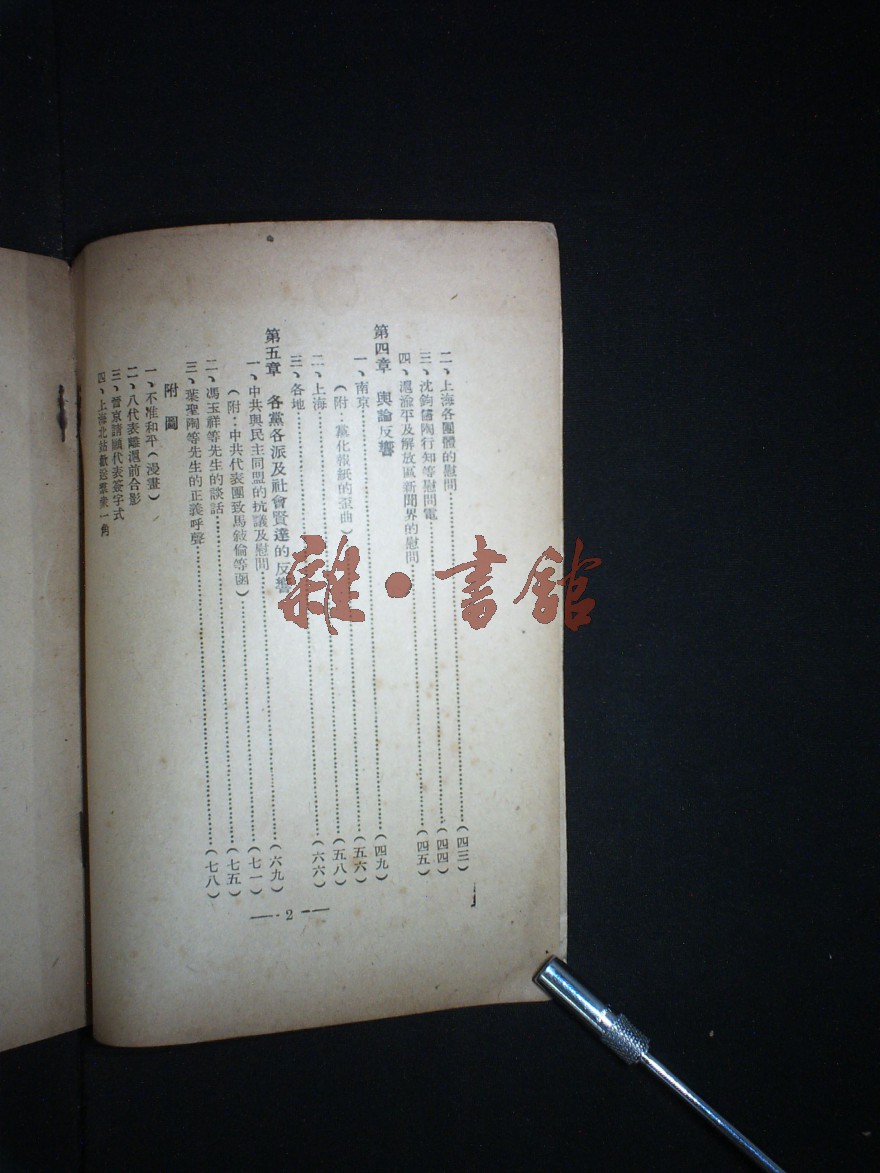 二、上海各團體的慰問……(四三)
三、沈鈞儒陶行知等慰問電……(四四)
四、滬渝平及解放區新聞界的慰問……(四五)
第四章　輿論反響
一、南京……(四九)
(附：黨化報紙的歪曲)……(五六)
二、上海……(五八)
三、各地……(六六)
第五章　各黨各派及社會賢達的反響
一、中共與民主同盟的抗議及慰問……(六九)
(附：中共代表團致馬敍倫等函)……(七一)
二、馮玉祥等先生的談話……(七五)
三、葉聖陶等先生的正義呼聲……(七八)
附圖
一、不准和平(漫畫)
二、八代表離滬前合影
三、晉京請願代表簽字式
四、上海北站歡送羣衆一角
— 2 —
雜·書館